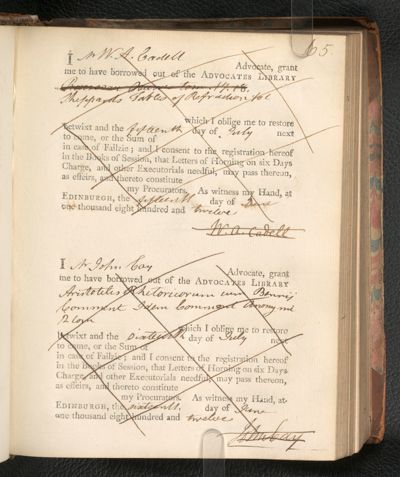 65
I Mr W. A. Cadell
Advocate, grant
me to have borrowed out of the ADVOCATES LIBRARY
Shepherds Tables of Refraction 4to
which I oblige me to restore
betwixt and the fifteenth day of July next
to come, or the Sum of
in case of Failzie; and I consent to the registration hereof
in the Books of Session, that Letters of Horning on six Days
Charge, and other Executorials needful, may pass thereon,
as effeirs, and thereto constitute
my Procurators. As witness my Hand, at
EDINBURGH, the fifteenth day of June
one thousand eight hundred and twelve
W. A. Cadell
I Mr John Cay
Advocate, grant
me to have borrowed out of the ADVOCATES LIBRARY
Aristotelis Rhetoricorum cum
Comment Idem Comment Anonymi
2 vols
which I oblige me to restore
betwixt and the sixteenth day of July next
to come, or the Sum of
in case of Failzie; and I consent to the registration hereof
in the Books of Session, that Letters of Horning on six Days
Charge, and other Executorials needful, may pass thereon,
as effeirs, and thereto constitute
my Procurators. As witness my Hand, at
EDINBURGH, the sixteenth day of June
one thousand eight hundred and twelve
John Cay